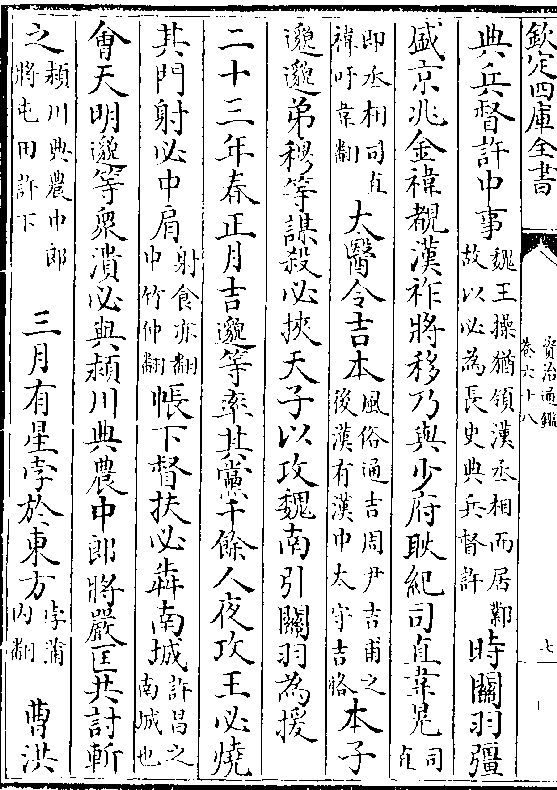 欽定四庫全書
資治通鑑
卷六十八
七
典兵督許中事魏王操猶領漢丞相而居鄴故以必為長史典兵督許時關羽彊
盛京兆金禕覩漢祚將移乃與少府耿紀司直韋晃司直
即丞相司直禕吁韋翻太醫令吉本風俗通吉周尹吉甫之後漢有漢中太守吉恪本子
邈邈弟穆等謀殺必挾天子以攻魏南引關羽為援
二十三年春正月吉邈等率其黨千餘人夜攻王必燒
其門射必中肩射食亦翻中竹仲翻帳下督扶必犇南城許昌之南城也
會天明邈等衆潰必與潁川典農中郎將嚴匡共討斬
之潁川典農中郎將屯田許下三月有星孛於東方孛蒲内翻曹洪